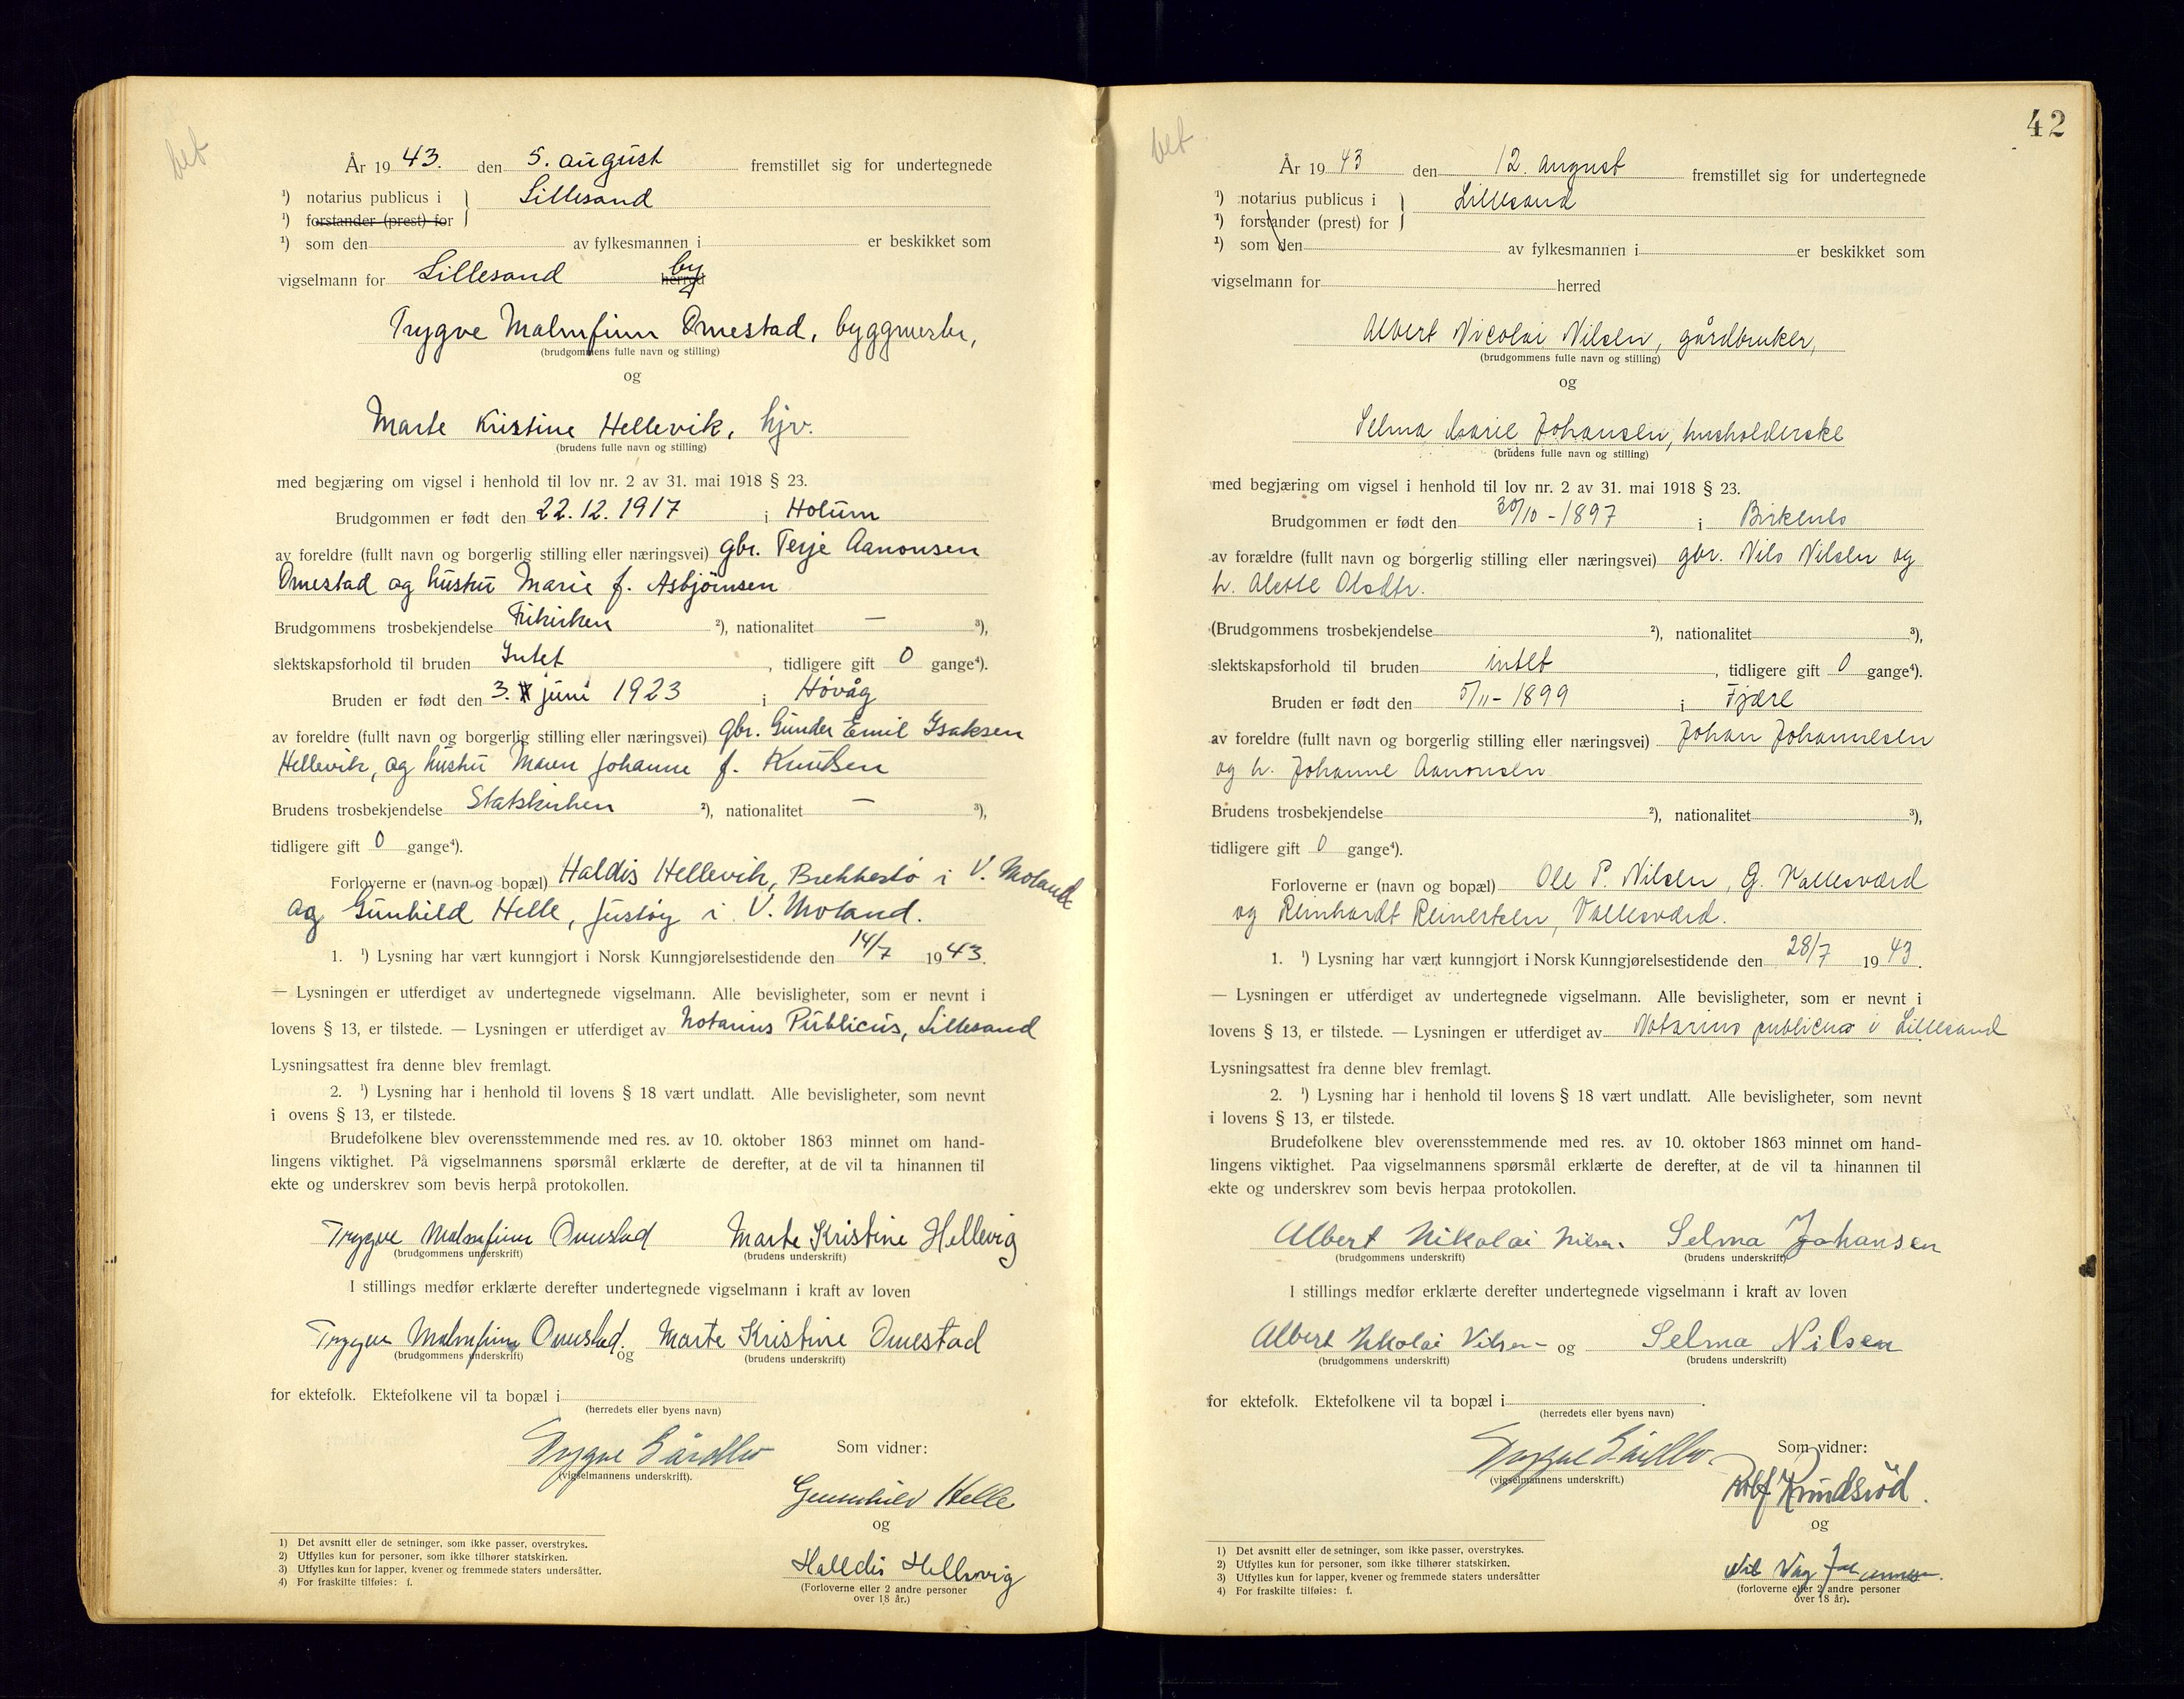 bet
År 1943. den 5. august fremstillet sig for undertegnede
¹) notarius publicus i } Lillesand
¹) forstander (prest) for
¹) som den av fylkesmannen i er beskikket som
vigselmann for Lillesand by herred
Trygve Malmfinn Omestad, byggmester,
(brudgommens fulle navn og stilling)
og
Marte Kristine Hellevik, hjv.
(brudens fulle navn og stilling)
med begjæring om vigsel i henhold til lov nr. 2 av 31. mai 1918 § 23.
Brudgommen er født den 22.12.1917 i Holum
av foreldre (fullt navn og borgerlig stilling eller næringsvei) gbr. Terje Aanonsen
Omestad og hustru Marie f. Asbjørnsen
Brudgommens trosbekjendelse Frikirken ²), nationalitet — ³),
slektskapsforhold til bruden Intet, tidligere gift 0 gange⁴).
Bruden er født den 3. juni 1923 i Høvåg
av foreldre (fullt navn og borgerlig stilling eller næringsvei) gbr. Gunder Emil Isaksen
Hellevik, og hustru Maren Johanne f. Knutsen
Brudens trosbekjendelse Statskirken ²), nationalitet — ³),
tidligere gift 0 gange⁴).
Forloverne er (navn og bopæl) Haldis Hellevik, Brekkestø i V. Moland
og Gunhild Helle, Justøy i V. Moland.
1. ¹) Lysning har vært kunngjort i Norsk Kunngjørelsestidende den 14/7 1943.
— Lysningen er utferdiget av undertegnede vigselmann. Alle bevisligheter, som er nevnt i
lovens § 13, er tilstede. — Lysningen er utferdiget av Notarius Publicus, Lillesand
Lysningsattest fra denne blev fremlagt.
2. ¹) Lysning har i henhold til lovens § 18 vært undlatt. Alle bevisligheter, som nevnt
i ovens § 13, er tilstede.
Brudefolkene blev overensstemmende med res. av 10. oktober 1863 minnet om hand-
lingens viktighet. På vigselmannens spørsmål erklærte de derefter, at de vil ta hinannen til
ekte og underskrev som bevis herpå protokollen.
Trygve Malmfinn Omestad Marte Kristine Hellevig
(brudgommens underskrift) (brudens underskrift)
I stillings medfør erklærte derefter undertegnede vigselmann i kraft av loven
Trygve Malmfinn Omestad. og Marte Kristine Omestad
(brudgommens underskrift) (brudens underskrift)
for ektefolk. Ektefolkene vil ta bopæl i
(herredets eller byens navn)
Trygve
(vigselmannens underskrift).
Som vidner:
Gunnhild Helle
og
Halldis Hellevig
(Forloverne eller 2 andre personer
over 18 år.)
1) Det avsnitt eller de setninger, som ikke passer, overstrykes.
2) Utfylles kun for personer, som ikke tilhører statskirken.
3) Utfylles kun for lapper, kvener og fremmede staters undersåtter.
4) For fraskilte tilføies: f.
42
bet
År 1943 den 12. august fremstillet sig for undertegnede
¹) notarius publicus i } Lillesand
¹) forstander (prest) for
¹) som den av fylkesmannen i er beskikket som
vigselmann for herred
Albert Nicolai Nilsen, gårdbruker,
(brudgommens fulle navn og stilling)
og
Selma Marie Johansen, husholderske
(brudens fulle navn og stilling)
med begjæring om vigsel i henhold til lov nr. 2 av 31. mai 1918 § 23.
Brudgommen er født den 30/10 - 1897 i Birkenes
av forældre (fullt navn og borgerlig stilling eller næringsvei) gbr. Nils Nilsen og
h. Olsdtr.
(Brudgommens trosbekjendelse ²), nationalitet ³),
slektskapsforhold til bruden intet, tidligere gift 0 gange⁴).
Bruden er født den 5/11 - 1899 i Fjære
av foreldre (fullt navn og borgerlig stilling eller næringsvei) Johan Johannesen
og h. Johanne Aanonsen
Brudens trosbekjendelse ²), nationalitet ³),
tidligere gift 0 gange⁴).
Forloverne er (navn og bopæl) Ole P. Nilsen, G. Vallesværd
og Reinhardt Reinertsen, Vallesværd.
1. ¹) Lysning har vært kunngjort i Norsk Kunngjørelsestidende den 28/7 1943.
— Lysningen er utferdiget av undertegnede vigselmann. Alle bevisligheter, som er nevnt i
lovens § 13, er tilstede. — Lysningen er utferdiget av Notarius publicus i Lillesand
Lysningsattest fra denne blev fremlagt.
2. ¹) Lysning har i henhold til lovens § 18 vært undlatt. Alle bevisligheter, som nevnt
i lovens § 13, er tilstede.
Brudefolkene blev overensstemmende med res. av 10. oktober 1863 minnet om hand-
lingens viktighet. Paa vigselmannens spørsmål erklærte de derefter, at de vil ta hinannen til
ekte og underskrev som bevis herpaa protokollen.
Albert Nikolai Nilsen Selma Johansen
(brudgommens underskrift) (brudens underskrift)
I stillings medfør erklærte derefter undertegnede vigselmann i kraft av loven
Albert Nikolai Nilsen og Selma Nilsen
(brudgommens underskrift) (brudens underskrift)
for ektefolk. Ektefolkene vil ta bopæl i .
(herredets eller byens navn)
Trygve
(vigselmannens underskrift.)
Som vidner:
Rolf
og
(forloverne eller 2 andre personer
over 18 år).
1) Det avsnitt eller de setninger, som ikke passer, overstrykes.
2) Utfylles kun for personer, som ikke tilhører statskirken.
3) Utfylles kun for lapper, kvener og fremmede staters undersåtter
4) For fraskilte tilføies: f.